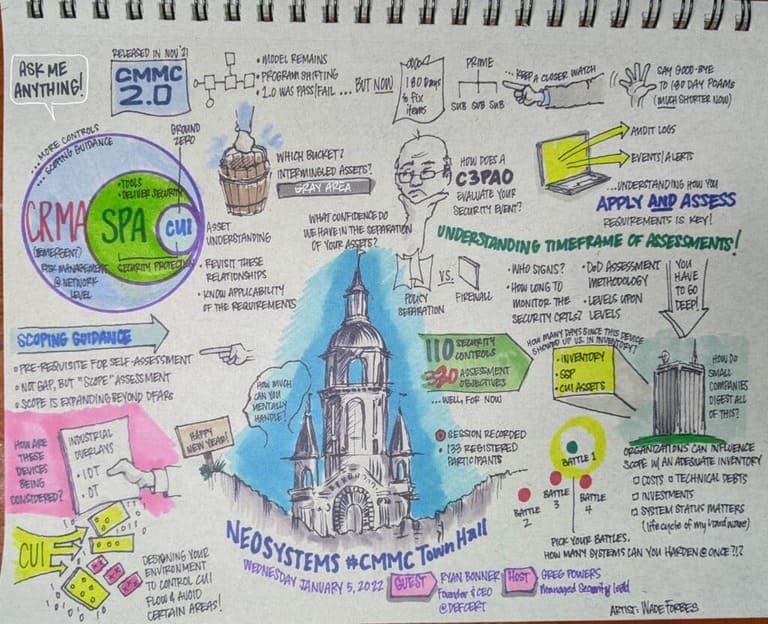 ASK ME
ANYTHING!
RELEASED IN NOV '21
CMMC
2.0
• MODEL REMAINS
• PROGRAM SHIFTING
• 1.0 WAS PASS/FAIL ... BUT NOW
180 Days
to fix
items
PRIME
SUB SUB SUB
... KEEP A CLOSER WATCH
SAY GOOD-BYE
TO 180 DAY POAMS
(MUCH SHORTER NOW)
... MORE CONTROLS
... SCOPING GUIDANCE
GROUND
ZERO
CRMA
RISK MANAGEMENT
@ NETWORK
LEVEL
• TOOLS
• DELIVER SECURITY
SPA
SECURITY PROTECTION
CUI
WHICH BUCKET?
INTERMINGLED ASSETS?
GRAY AREA
ASSET
UNDERSTANDING
• REVISIT THESE
RELATIONSHIPS
• KNOW APPLICABILITY
OF THE REQUIREMENTS
WHAT CONFIDENCE DO
WE HAVE IN THE SEPARATION
OF YOUR ASSETS?
HOW DOES A
C3PAO
EVALUATE YOUR
SECURITY EVENT?
AUDIT LOGS
EVENTS/ALERTS
... UNDERSTANDING HOW YOU
APPLY AND ASSESS
REQUIREMENTS IS KEY!
UNDERSTANDING TIMEFRAME OF ASSESSMENTS!
POLICY
SEPARATION
VS.
FIREWALL
• WHO SIGNS?
• HOW LONG TO
MONITOR THE
SECURITY CRTLS?
• DoD ASSESSMENT
METHODOLOGY
• LEVELS UPON
LEVELS
YOU
HAVE
TO GO
DEEP!
SCOPING GUIDANCE
• PRE-REQUISITE FOR SELF-ASSESSMENT
• NOT GAP, BUT "SCOPE" ASSESSMENT
• SCOPE IS EXPANDING BEYOND DFARS
HOW MUCH
CAN YOU
MENTALLY
HANDLE!
110 SECURITY
CONTROLS
320 ASSESSMENT
OBJECTIVES
... WELL, FOR NOW
HOW MANY DAYS SINCE THIS DEVICE
SHOWED UP IN INVENTORY?
• INVENTORY
• SSP
• CUI ASSETS
HOW DO
SMALL
COMPANIES
DIGEST ALL
OF THIS?
HOW ARE
THESE
DEVICES
BEING
CONSIDERED?
INDUSTRIAL
OVERLAYS
• IOT
• OT
HAPPY
NEW YEAR!
SESSION RECORDED
• 133 REGISTERED
PARTICIPANTS
BATTLE 1
BATTLE
2
BATTLE
3
BATTLE
4
ORGANIZATIONS CAN INFLUENCE
SCOPE W/ AN ADEQUATE INVENTORY
COSTS TECHNICAL DEBTS
INVESTMENTS
SYSTEM STATUS MATTERS
(life cycle of my hardware)
PICK YOUR BATTLES,
HOW MANY SYSTEMS CAN YOU HARDEN @ ONCE?!?
CUI
DESIGNING YOUR
ENVIRONMENT
TO CONTROL CUI
FLOW & AVOID
CERTAIN AREAS!
NEOSYSTEMS #CMMC Town Hall
WEDNESDAY JANUARY 5, 2022
GUEST
RYAN BONNER
Founder & CEO
@DEFCERT
HOST
GREG POWERS
Managed Security Lead
ARTIST: WADE FORBES